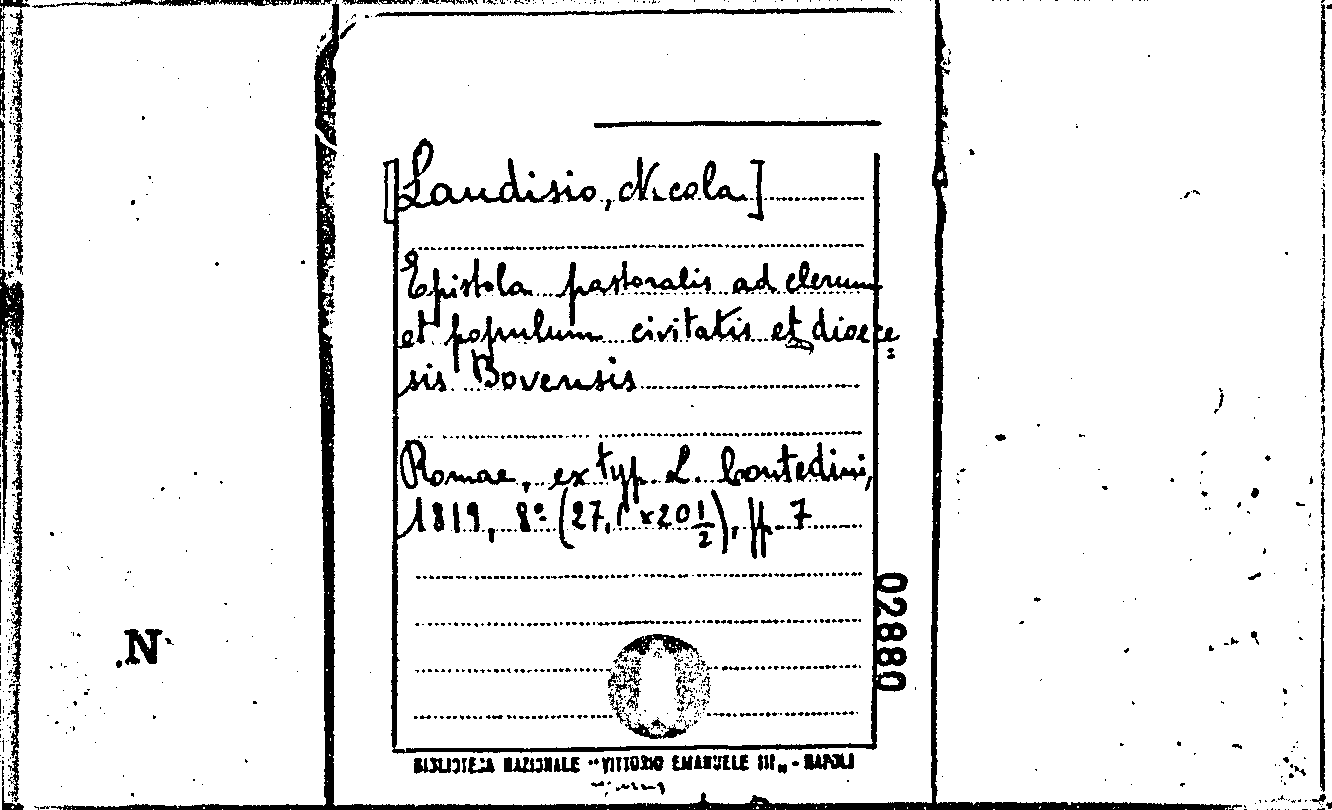 [Laudisio, Nicola]
Epistola pastoralis ad clerum
et populum civitatis et dioece=
sis Bovensis
Romae, ex typ. L. Contedini,
1819, 8º (27, x20 1/2), pp. 7
02880
.N
BIBLIOTECA NAZIONALE "VITTORIO EMANUELE III" - NAPOLI